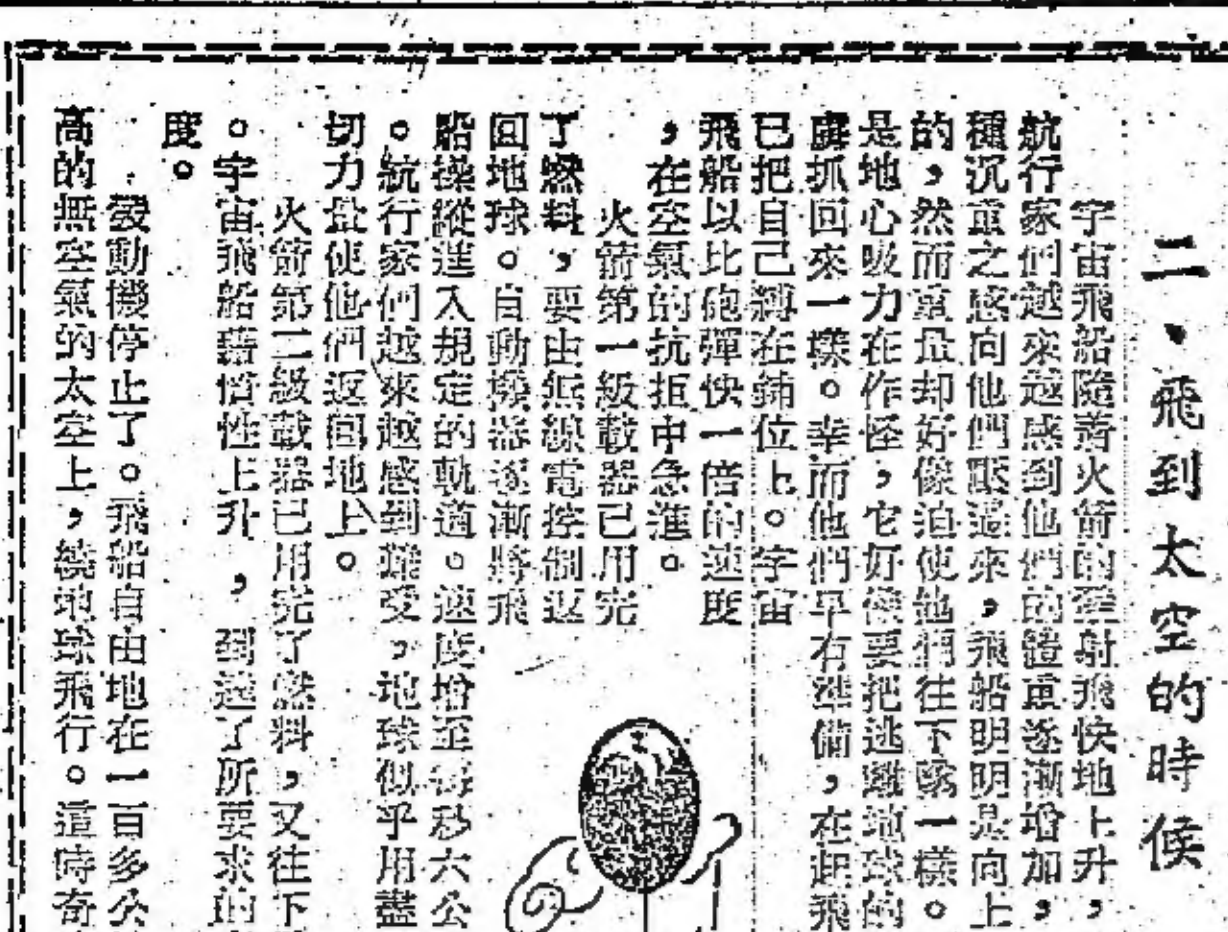 二、飛到太空的時候
宇宙飛船隨着火箭的發射飛快地上升，
航行家們越來越感到他們的體重逐漸增加，
種沉重之感向他們壓過來，飛船明明是向上
的，然而重量却好像迫使他們往下墜一樣。
是地心吸力在作怪，它好像要把逃離地球的
虜抓回來一樣。幸而他們早有準備，在起飛
已把自己縛在鋪位上。宇宙
飛船以比砲彈快一倍的速度
，在空氣的抗拒中急進。
火箭第一級載器已用完
了燃料，要由無線電控制返
回地球。自動機器逐漸將飛
船操縱進入規定的軌道。速度增至每秒六公
。航行家們越來越感到難受，地球似乎用盡
切力量使他們返回地上。
火箭第二級載器已用完了燃料，又往下
。宇宙飛船藉惰性上升，到達了所要求的
度。
發動機停止了。飛船自由地在一百多公
高的無空氣的太空上，繞地球飛行。這時奇